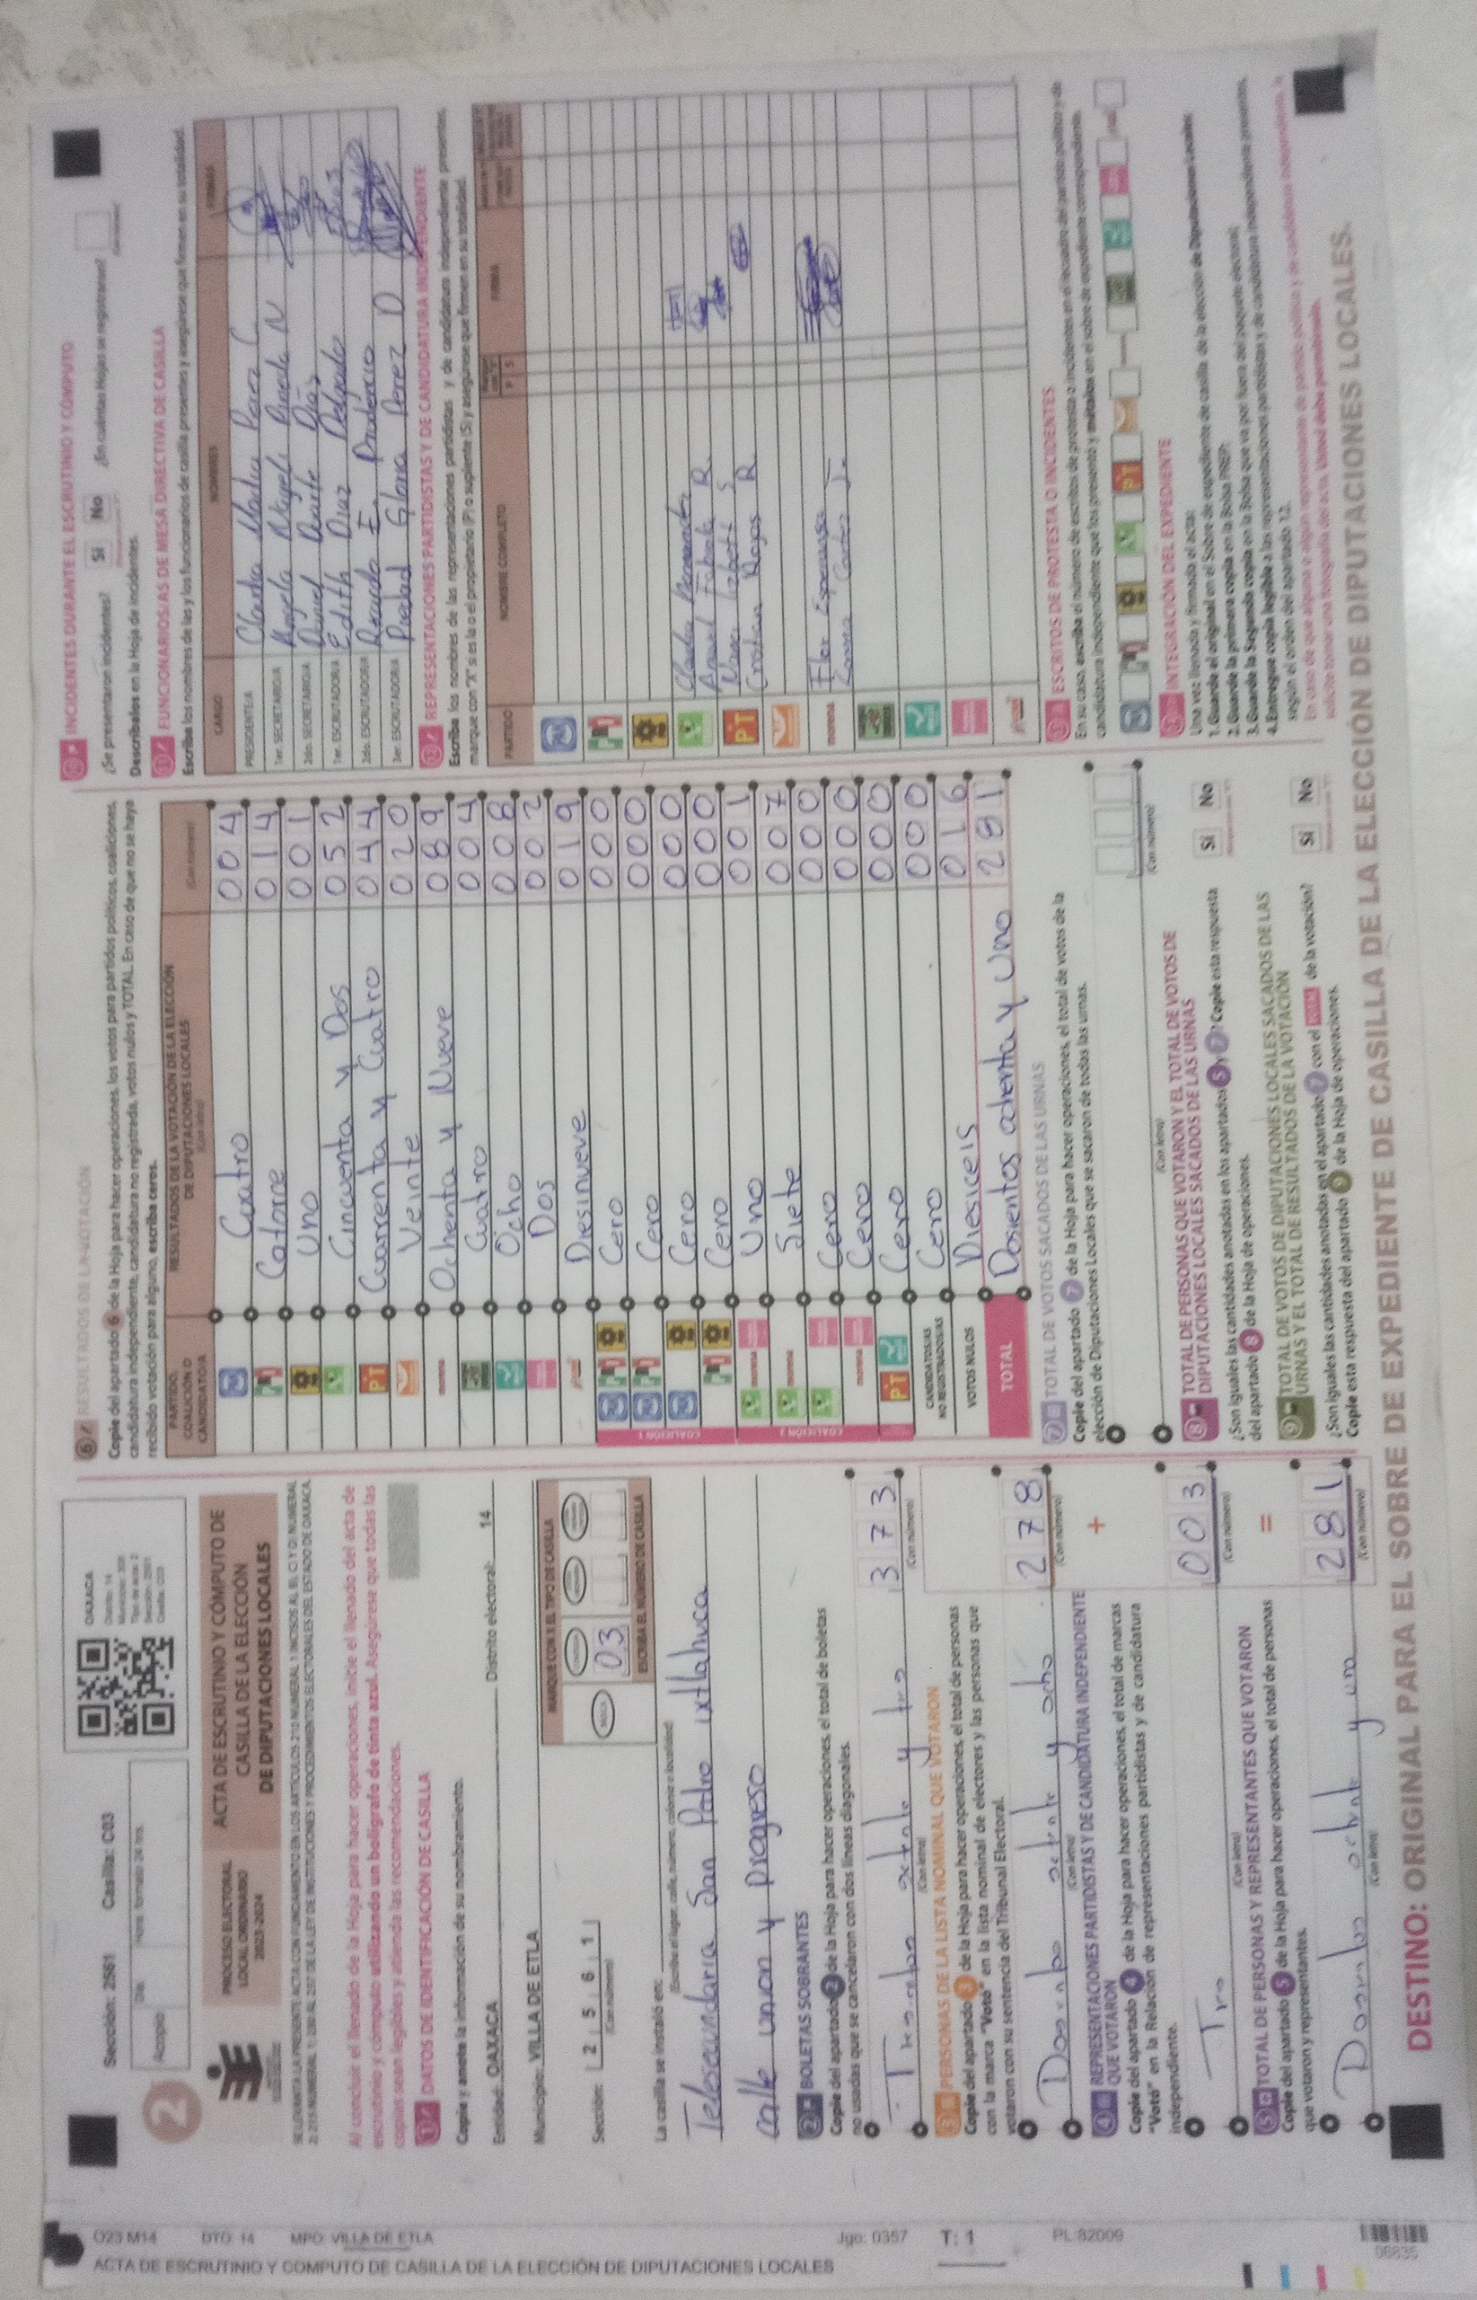 Sección: 2561 Casilla: C03
OAXACA
2
Acopio
Día
PROCESO ELECTORAL
LOCAL ORDINARIO
2023-2024
ACTA DE ESCRUTINIO Y CÓMPUTO DE
CASILLA DE LA ELECCIÓN
DE DIPUTACIONES LOCALES
Al concluir el llenado de la Hoja para hacer operaciones, inicie el llenado del acta de
escrutinio y cómputo utilizando un bolígrafo de tinta azul. Asegúrese que todas las
copias sean legibles y atienda las recomendaciones.
1 DATOS DE IDENTIFICACIÓN DE CASILLA
Copie y anote la información de su nombramiento.
Entidad: OAXACA Distrito electoral: 14
Municipio: VILLA DE ETLA
MARQUE CON X EL TIPO DE CASILLA
Sección: 2 5 6 1
(Con número)
03
ESCRIBA EL NÚMERO DE CASILLA
La casilla se instaló en:
Telesecundaria San Pedro ixtlahuca
calle union y progreso
2 BOLETAS SOBRANTES
Copie del apartado 2 de la Hoja para hacer operaciones, el total de boletas
no usadas que se cancelaron con dos líneas diagonales.
373
(Con letra) (Con número)
3 PERSONAS DE LA LISTA NOMINAL QUE VOTARON
Copie del apartado 3 de la Hoja para hacer operaciones, el total de personas
con la marca "Votó" en la lista nominal de electores y las personas que
votaron con su sentencia del Tribunal Electoral.
278
(Con letra) (Con número)
+
4 REPRESENTACIONES PARTIDISTAS Y DE CANDIDATURA INDEPENDIENTE
QUE VOTARON
Copie del apartado 4 de la Hoja para hacer operaciones, el total de marcas
"Votó" en la Relación de representaciones partidistas y de candidatura
independiente.
Tres 003
(Con letra) (Con número)
=
5 TOTAL DE PERSONAS Y REPRESENTANTES QUE VOTARON
Copie del apartado 5 de la Hoja para hacer operaciones, el total de personas
que votaron y representantes.
281
(Con letra) (Con número)
6 RESULTADOS DE LA VOTACIÓN
Copie del apartado 6 de la Hoja para hacer operaciones, los votos para partidos políticos, coaliciones,
candidatura independiente, candidatura no registrada, votos nulos y TOTAL. En caso de que no se haya
recibido votación para alguno, escriba ceros.
PARTIDO,
COALICIÓN O
CANDIDATO/A
RESULTADOS DE LA VOTACIÓN DE LA ELECCIÓN
DE DIPUTACIONES LOCALES
Cuatro 004
Catorce 014
Uno 001
Cincuenta y Dos 052
PT Cuarrenta y Cuatro 044
Veinte 020
morena Ochenta y Nueve 089
Cuatro 004
Ocho 008
Dos 002
Diesinueve 019
COALICIÓN 1
Cero 000
Cero 000
Cero 000
Cero 000
COALICIÓN 2
morena Uno 001
morena Siete 007
Cero 000
morena Cero 000
PT Cero 000
CANDIDATOS/AS
NO REGISTRADOS/AS Cero 000
VOTOS NULOS Diesiceis 016
TOTAL Dosientos ochenta y Uno 281
7 TOTAL DE VOTOS SACADOS DE LAS URNAS
Copie del apartado 7 de la Hoja para hacer operaciones, el total de votos de la
elección de Diputaciones Locales que se sacaron de todas las urnas.
(Con letra) (Con número)
8 TOTAL DE PERSONAS QUE VOTARON Y EL TOTAL DE VOTOS DE
DIPUTACIONES LOCALES SACADOS DE LAS URNAS
¿Son iguales las cantidades anotadas en los apartados 5 y 7? Copie esta respuesta
del apartado 8 de la Hoja de operaciones.
Sí No
9 TOTAL DE VOTOS DE DIPUTACIONES LOCALES SACADOS DE LAS
URNAS Y EL TOTAL DE RESULTADOS DE LA VOTACIÓN
¿Son iguales las cantidades anotadas en el apartado 7 con el TOTAL de la votación?
Copie esta respuesta del apartado 9 de la Hoja de operaciones.
Sí No
INCIDENTES DURANTE EL ESCRUTINIO Y CÓMPUTO
¿Se presentaron incidentes? Sí No ¿En cuántas Hojas se registraron?
Descríbalos en la Hoja de Incidentes.
FUNCIONARIOS/AS DE MESA DIRECTIVA DE CASILLA
Escriba los nombres de las y los funcionarios de casilla presentes y asegúrese que firmen en su totalidad.
CARGO NOMBRES FIRMAS
PRESIDENTE/A Claudia Perez C
1er. SECRETARIO/A Angela Pineda N
2do. SECRETARIO/A Daniel Duarte Diaz
1er. ESCRUTADOR/A Edith Diaz Delgado
2do. ESCRUTADOR/A Ricardo E. Prudencio
3er. ESCRUTADOR/A Piedad Gloria Perez D
REPRESENTACIONES PARTIDISTAS Y DE CANDIDATURA INDEPENDIENTE
Escriba los nombres de las representaciones partidistas y de candidatura independiente presentes,
marque con "X" si es la o el propietario (P) o suplente (S) y asegúrese que firmen en su totalidad.
PARTIDO NOMBRE COMPLETO P S FIRMA
Claudia Hernandez
R.
PT Lizbeth S
Cristian Rojas R
morena Flor Esperanza
Cortes
ESCRITOS DE PROTESTA O INCIDENTES
En su caso, escriba el número de escritos de protesta o incidentes en el recuadro del partido político y de
candidatura independiente que los presentó y métalos en el sobre de expediente correspondiente.
INTEGRACIÓN DEL EXPEDIENTE
Una vez llenada y firmada el acta:
1. Guarde el original en el Sobre de expediente de casilla de la elección de Diputaciones Locales;
2. Guarde la primera copia en la Bolsa PREP;
3. Guarde la Segunda copia en la Bolsa que va por fuera del paquete electoral;
4. Entregue copia legible a las representaciones partidistas y de candidatura independiente presentes,
según el orden del apartado 12.
DESTINO: ORIGINAL PARA EL SOBRE DE EXPEDIENTE DE CASILLA DE LA ELECCIÓN DE DIPUTACIONES LOCALES.
O23 M14 DTO: 14 MPO: VILLA DE ETLA Jgo: 0357 T: 1 PL:82009
ACTA DE ESCRUTINIO Y COMPUTO DE CASILLA DE LA ELECCIÓN DE DIPUTACIONES LOCALES